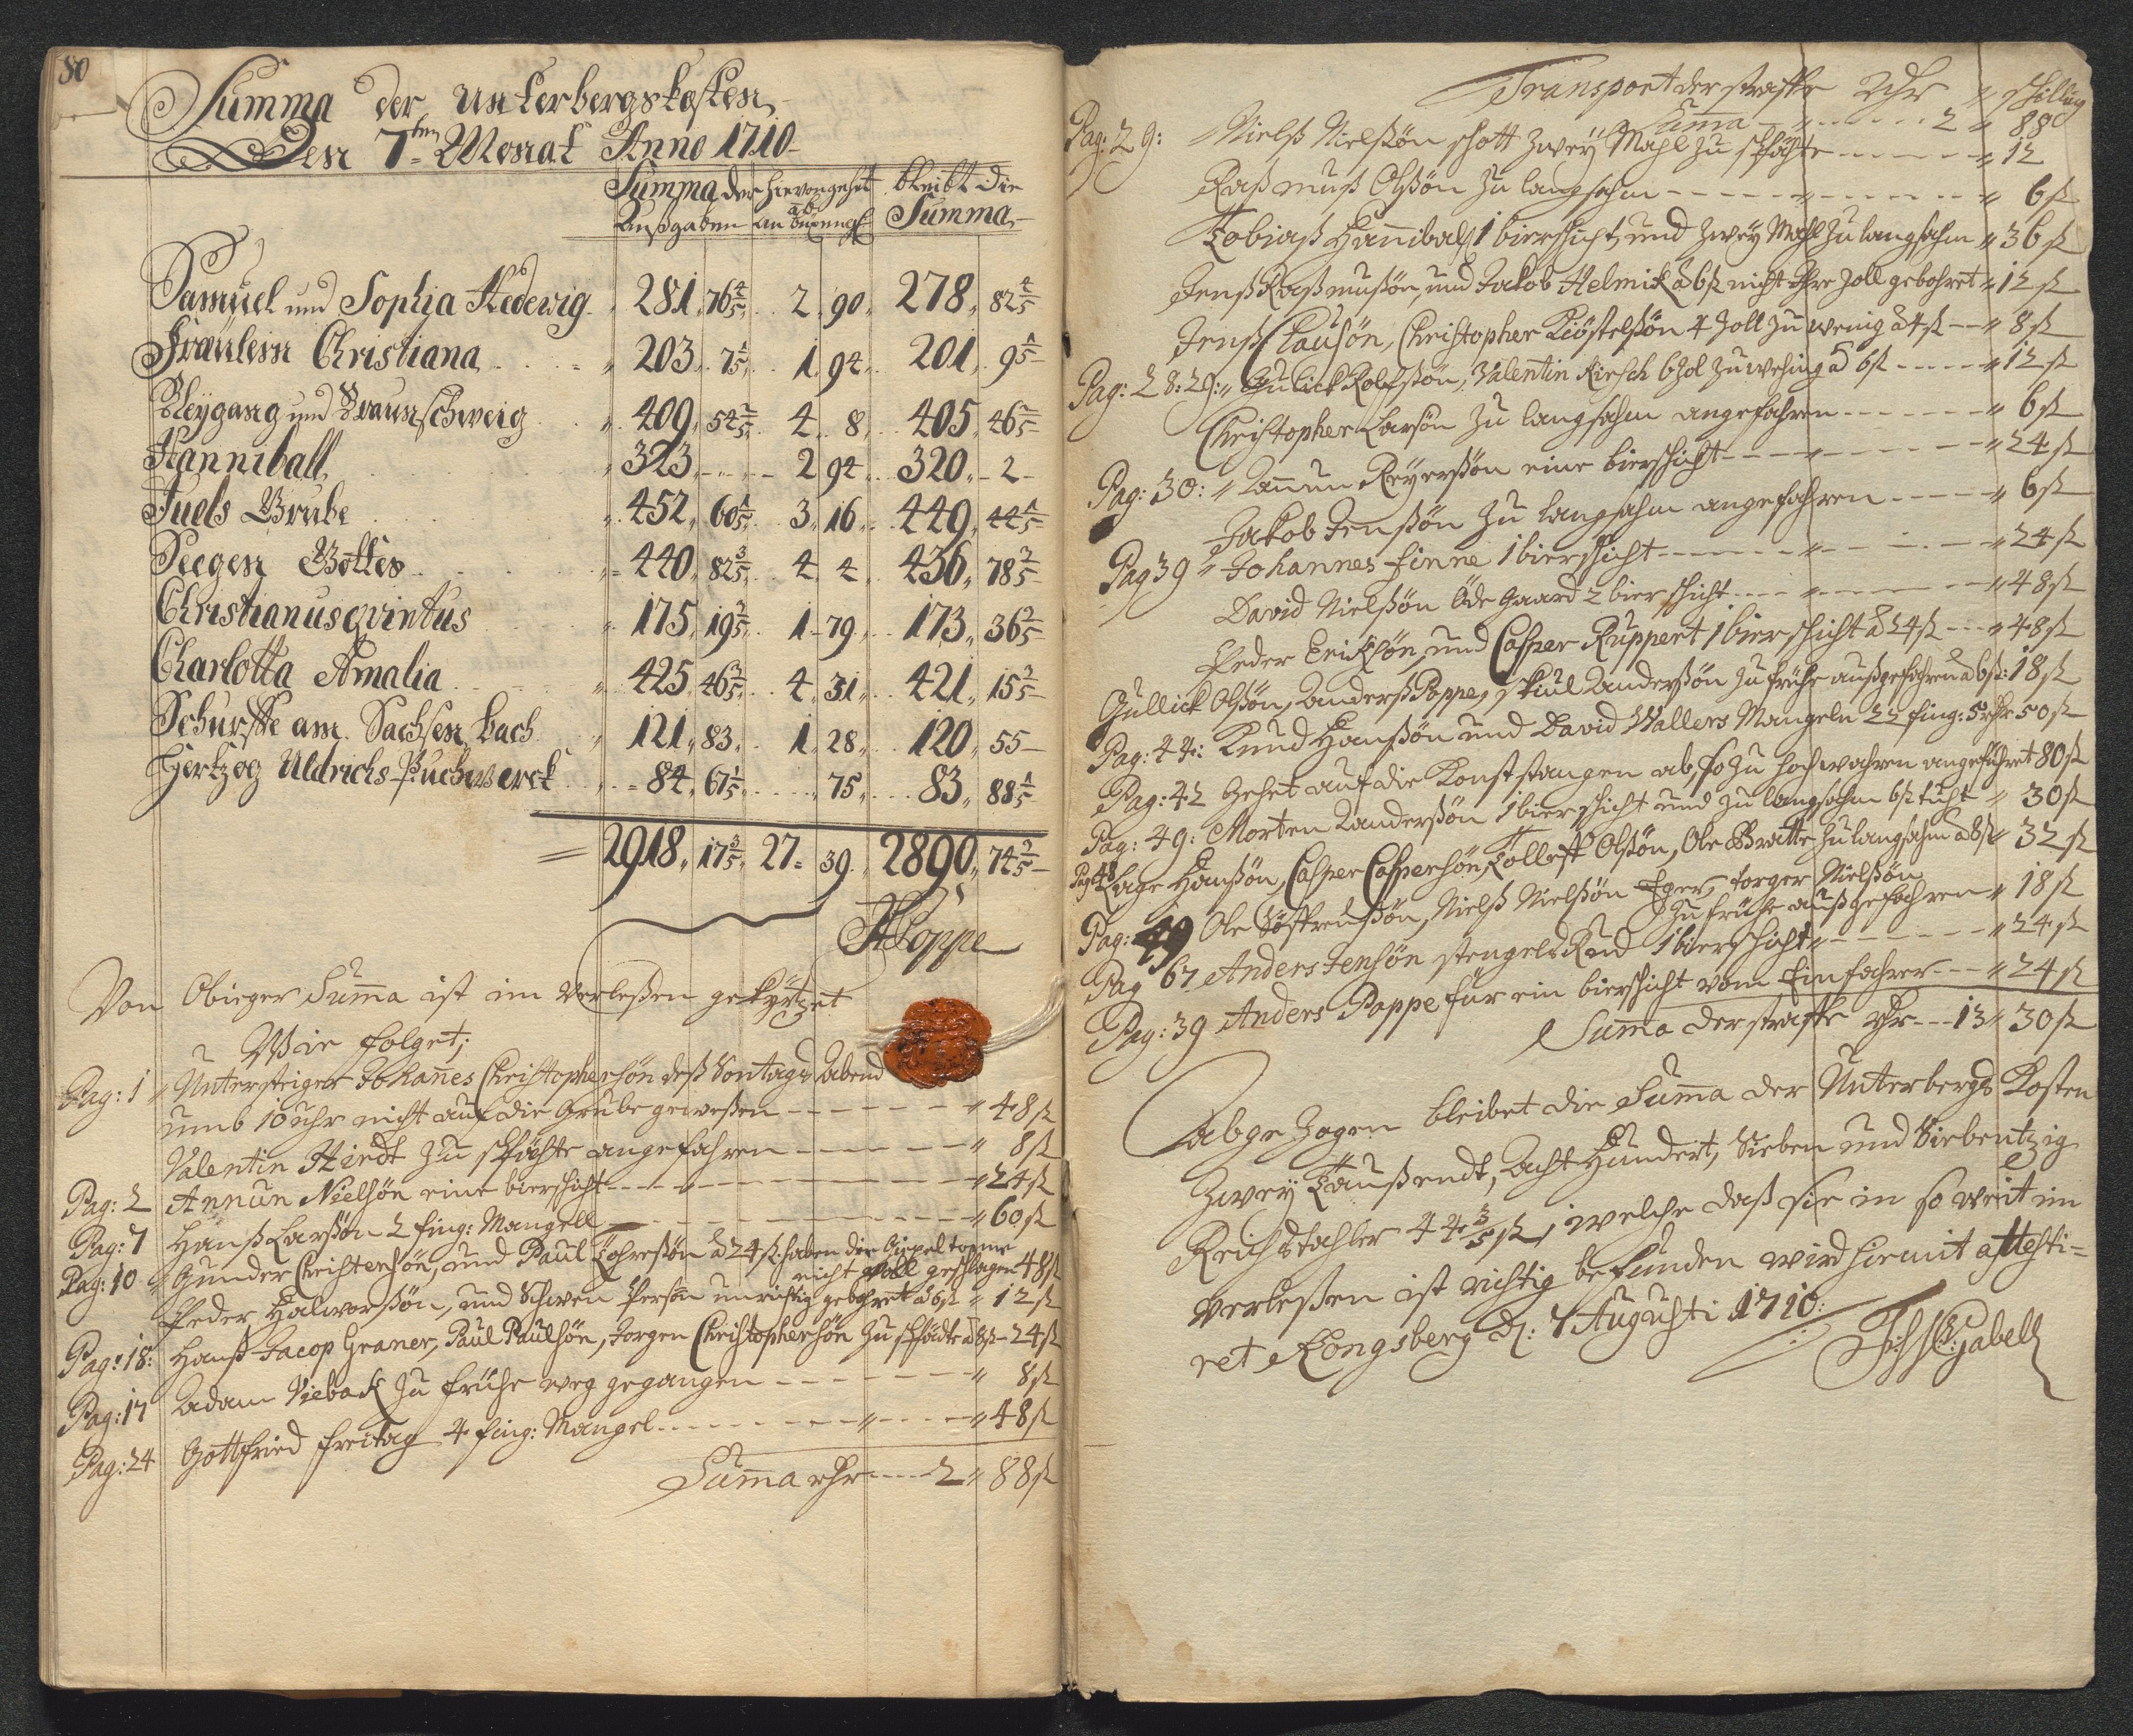 80
Summa der Unterbergskosten
Den 7ten Monat Anno 1710
Summa der Außgaben | hievon gehet ab an büxengl | bleibt die Summa
Samuel und Sophia Hedewig " 281 " 76 4/5 " 2 " 90 " 278 " 82 4/5
Fräulein Christiana " 203 " 7 1/5 " 1 " 94 " 201 " 9 1/5
Bleygang und Braunschweig " 409 " 54 2/5 " 4 " 8 " 405 " 46 2/5
Hanniball " 323 " - " 2 " 94 " 320 " 2
Juels Grube " 452 " 60 1/5 " 3 " 16 " 449 " 44 1/5
Seegen Gottes " 440 " 82 3/5 " 4 " 4 " 436 " 78 3/5
Christianus qvintus " 175 " 19 2/5 " 1 " 79 " 173 " 36 2/5
Charlotta Amalia " 425 " 46 2/5 " 4 " 31 " 421 " 15 2/5
Schurffe am Sachsen bach " 121 " 83 " 1 " 28 " 120 " 55
Hertzog Uldrichs Puchwerck " 84 " 67 1/5 " 75 " 83 " 88 1/5
2918 " 17 3/5 " 27 " 39 " 2890 " 74 3/5
Poppe
Von Obieger Summa ist im verleßen gekürtzet
Wie folget;
Pag: 1 " Untersteiger Johannes Christophersön deß Sontags Abend
umb 10 uhr nicht auf die Grube geweßen " 48 ß
Valentin Hirdt zu spähte angefahren " 8 ß
Pag: 2 Annun Nielsön eine bierschicht " 24 ß
Pag: 7 Hanß Larßön 2 fing: Mangell " 60 ß
Pag: 10 " Gunder Christensön, und Paul Tohresön à 24 ß: haben die Gipel tonne
nicht voll geschlagen 48 ß
Peder Halworsön, und Schwen Persön unrichtig gebohret à 6 ß " 12 ß
Pag: 18: Hanß Jacop Graner, Paul Paulsön, Jorgen Christophersön zu spädte à 8 ß - 24 ß
Pag: 17 Adam Vieback zu frühe weg gegangen " 8 ß
Pag: 24 Gottfried freitag 4 fing: Mangel " 48 ß
Summa rthr 2 " 88 ß
Transport der straffe Rthr " schilling
Summa 2 " 88
Pag: 29: Nielß Nielßön schott zwey Mahl zu spähte " 12
Raßmuß Olßön zu langsahm " 6 ß
Tobiaß Hanibal 1 bierschicht, und zwey Mahl zu langsahm " 36 ß
Jenß Raßmußön, und Jakob Helmick à 6 ß nicht Ihre Zoll gebohret " 12 ß
Jenß Clausön, Christopher Kiöstelßön 4 Zoll zu wenig à 4 ß " 8 ß
Pag: 28: 29: " Gulick Rolfßön, Valentin Kirsch 6 Zol zu wehing à 6 ß " 12 ß
Christopher Larsön zu langsahm angefahren " 6 ß
Pag: 30: " Annun Reyerßön eine bierschicht " 24 ß
Jakob Jenßön zu langsahm angefahren " 6 ß
Pag 39 " Johannes finne 1 bierschicht " 24 ß
David Nielßön Öde Gaard 2 bierschicht " 48 ß
Peder Ericksön, und Casper Ruppert 1 bierschicht à 24 ß " 48 ß
Gullick Olßön, Anderß Poppe, Skiul Anderßön zu frühe außgefahren à 6 ß: 18 ß
Pag: 44: Knud Hanßön und David Wallers Mangeln 22 fing: 5 rthr 50 ß
Pag: 42 Gehet auf die Konststangen ab, so zu hoch wahren angeführet 80 ß
Pag: 49: Morten Anderßön 1 bierschicht und zu langsahm 6 ß " 30 ß
Pag: 48 Lage Hanßön, Casper Caspersön, Tolleff Olßön, Ole Bratte zu langsahm à 8 ß " 32 ß
Pag: 49 Ole Nielß Nielßön Eger, torger Nielßön
zu frühe außgefahren " 18 ß
Pag 67 Anders Jensön 1 bierschicht " 24 ß
Pag: 39 Anders Poppe für ein bierschicht vom Einfahrer " 24 ß
Summa der straffe rthr 13 " 30 ß
abgezogen bleibet die Summa der Unterbergs Kosten
Zwey Taußendt, Acht Hundert, Sieben und Siebentzig
Reichsthaler 44 3/5 ß, welche daß sie in so weit im
verleßen ist richtig befunden wird hiermit attesti=
ret Kongsberg d: 7 Augusti 1710: